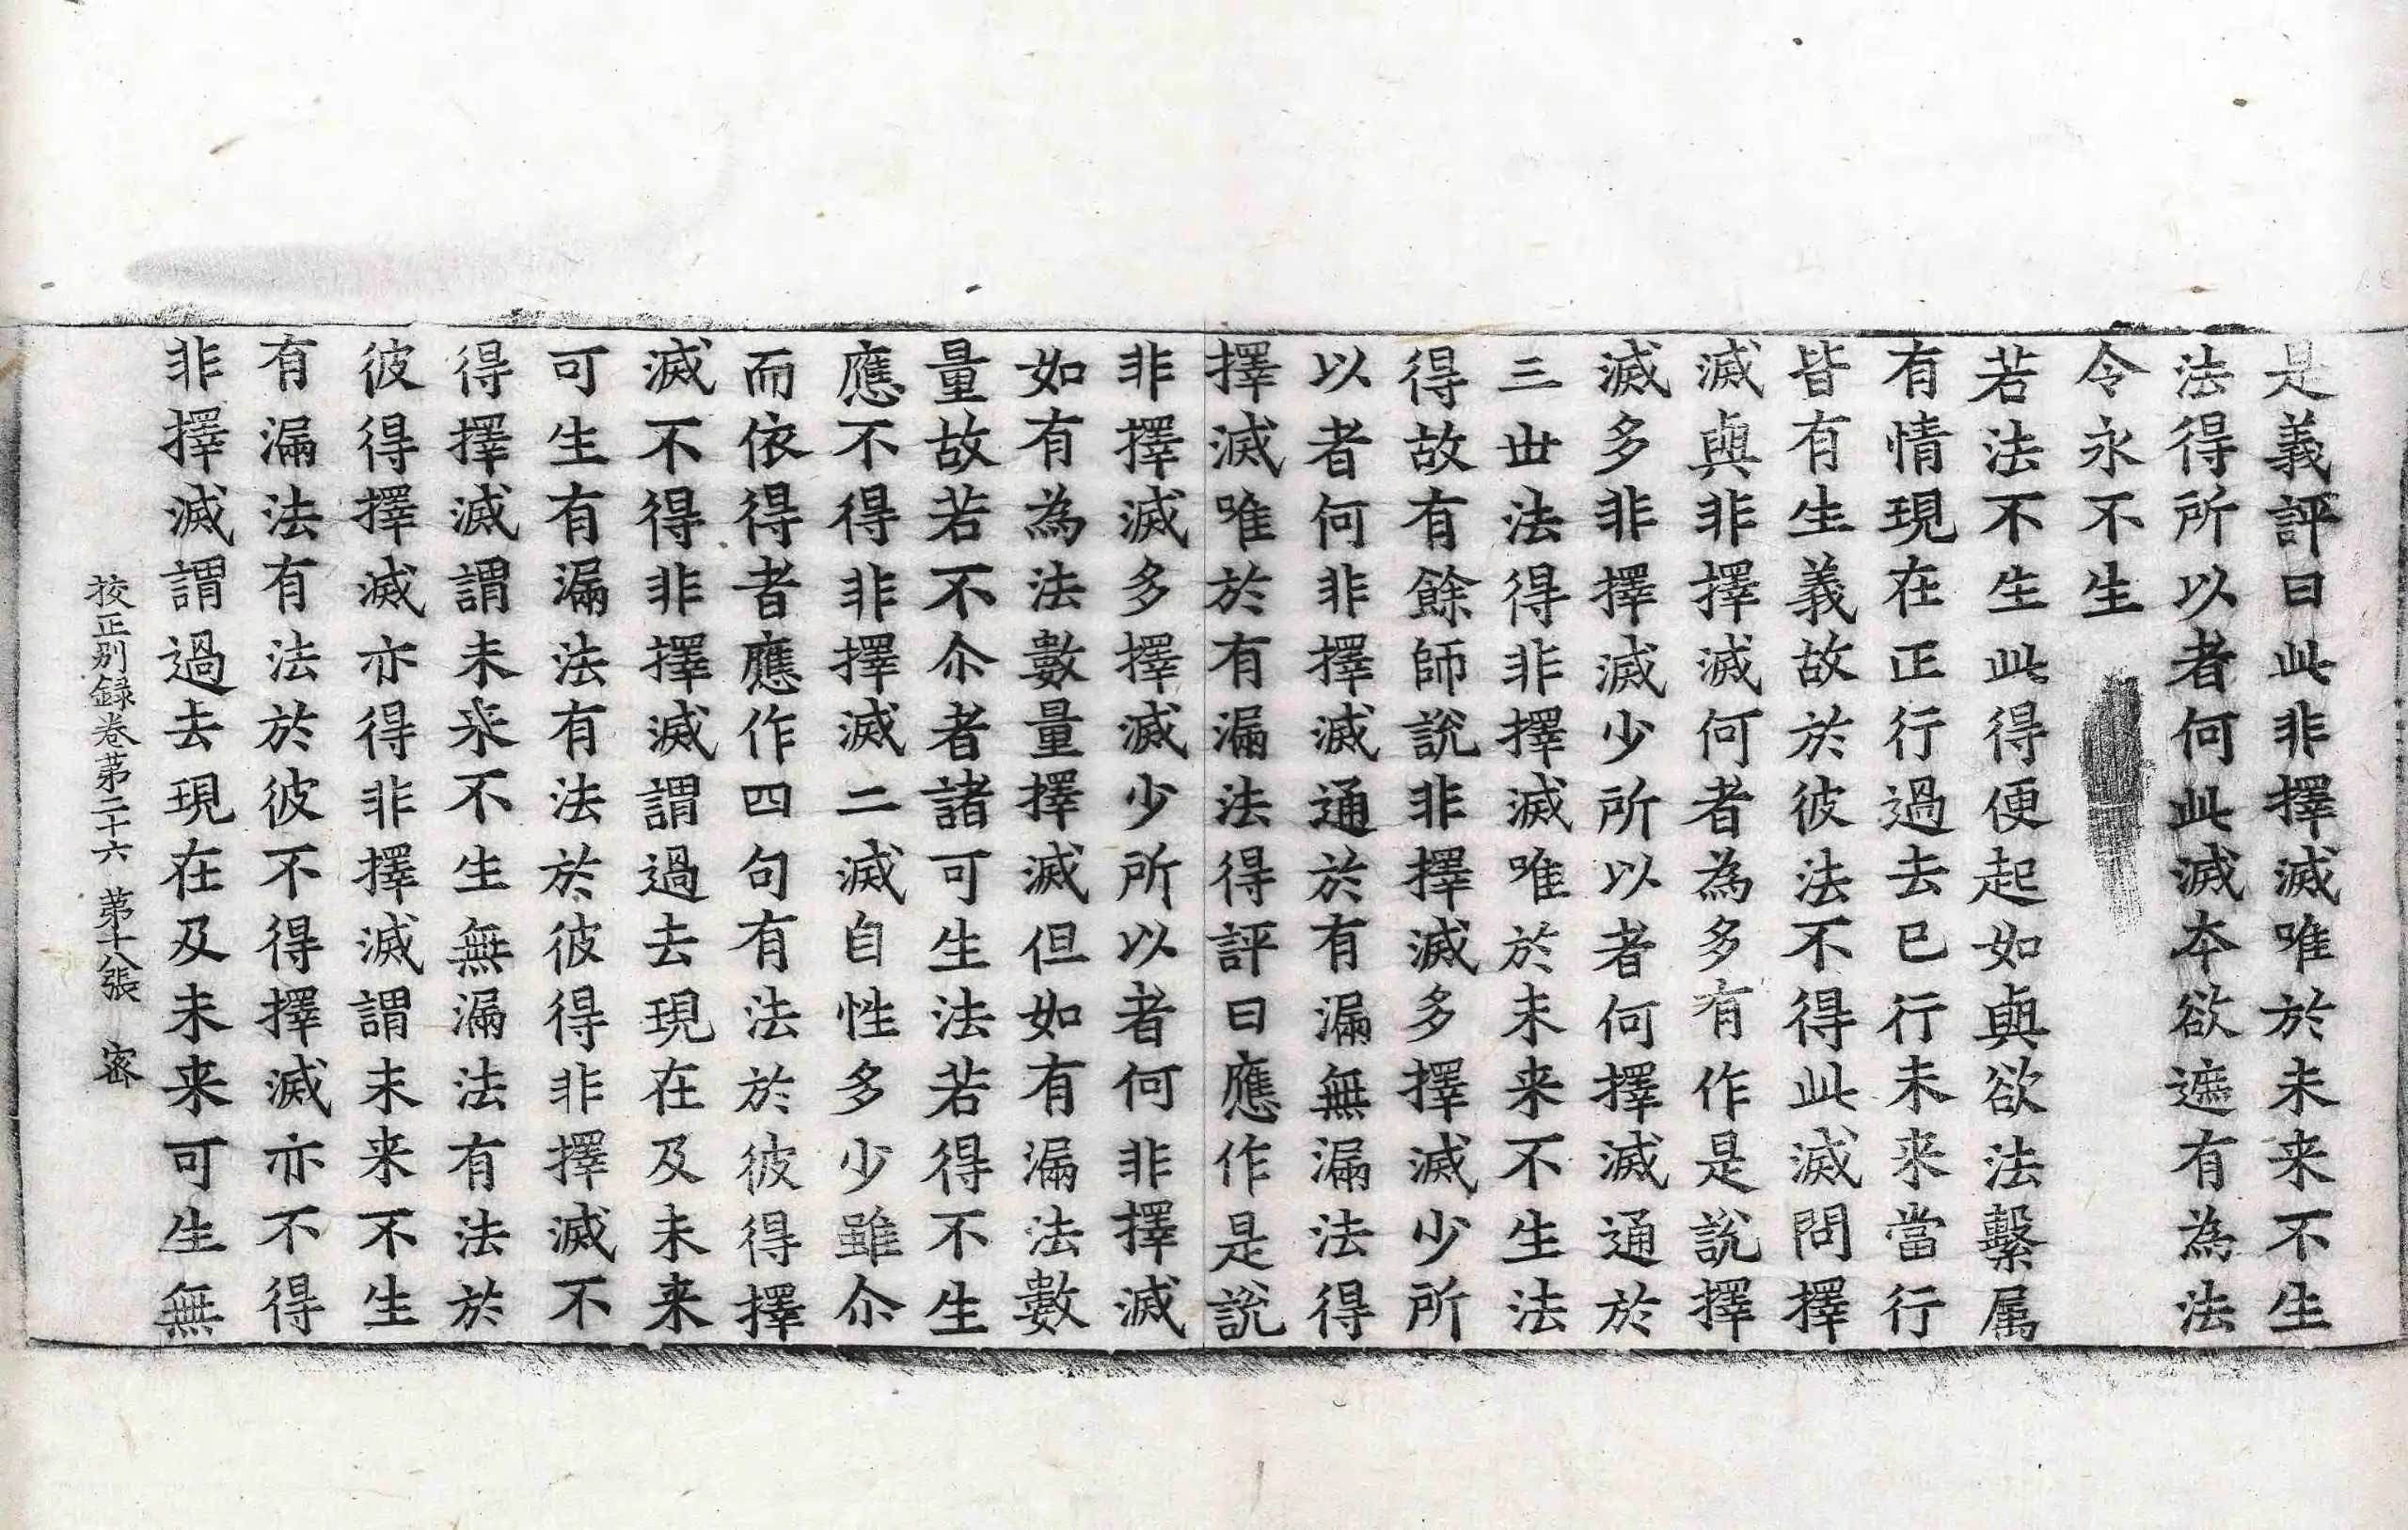 是義評曰此非擇滅唯於未来不生
法得所以者何此滅夲欲遮有為法
令永不生
若法不生此得便起如與欲法繫属
有情現在正行過去已行未来當行
皆有生義故於彼法不得此滅問擇
滅與非擇滅何者為多有作是說擇
滅多非擇滅少所以者何擇滅通於
三世法得非擇滅唯於未来不生法
得故有餘師說非擇滅多擇滅少所
以者何非擇滅通於有漏無漏法得
擇滅唯於有漏法得評曰應作是說
非擇滅多擇滅少所以者何非擇滅
如有為法數量擇滅但如有漏法數
量故若不尒者諸可生法若得不生
應不得非擇滅二滅自性多少雖尒
而依得者應作四句有法於彼得擇
滅不得非擇滅謂過去現在及未来
可生有漏法有法於彼得非擇滅不
得擇滅謂未来不生無漏法有法於
彼得擇滅亦得非擇滅謂未来不生
有漏法有法於彼不得擇滅亦不得
非擇滅謂過去現在及未来可生無
挍正別録卷第二十六 第十八張 密